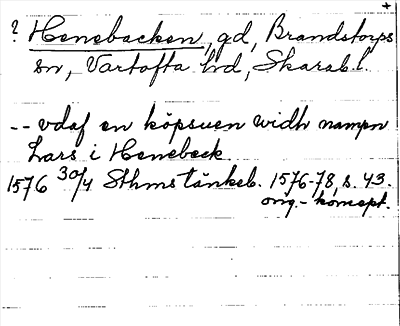 +
? Henebacken, gd, Brandstorps
sn, Vartofta hd, Skarab.l.
-- vdaf en köpsuen widh nampn
Lars i Henebeck.
1576 30/4 Sthms tänkeb. 1576-78, s. 43.
orig.-koncept.